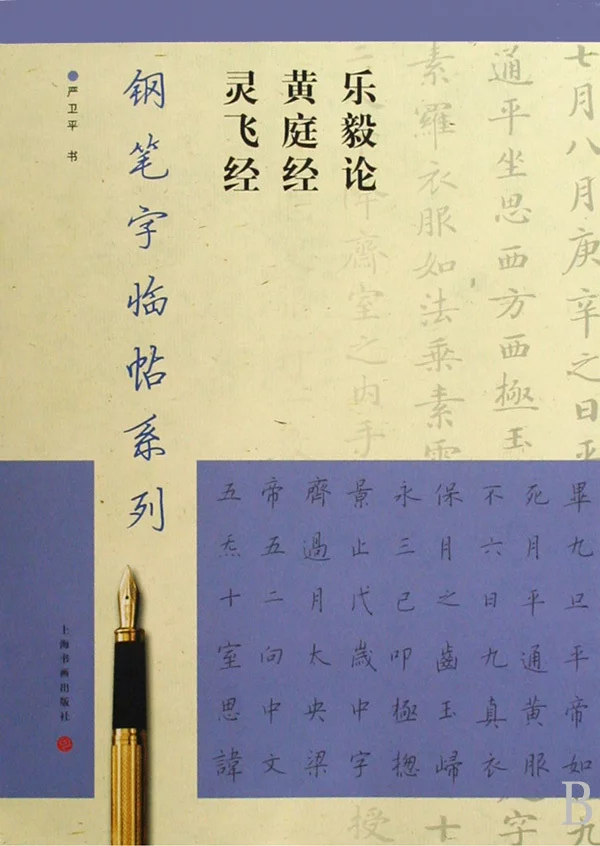 七月八月庚辛之日平
通平坐思西方西極玉
素羅衣服如法乘素雲
齋室之内手
授
乐毅论
黄庭经
灵飞经
钢笔字临帖系列
严卫平 书
畢九旦平帝如
死月平通黄服
不六日九真衣
保月之齒玉歸
永三已叩極摠
景止代歲中字
齊過月太央梁
帝五二向中文
五炁十室思諱
十
字
九
上海书画出版社
B